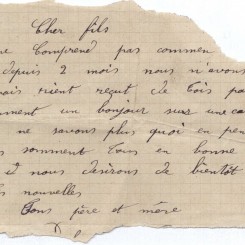 Cher fils
ne Comprend pas commen
depuis 2 mois nous n'avons
mais rient reçut de Toi pas
ment un bonjour sur une ca
ne savons plus quoi en pen
s somment Tous en bonne
et nous desirons de bientôt
s nouvelles
Tons père et mère